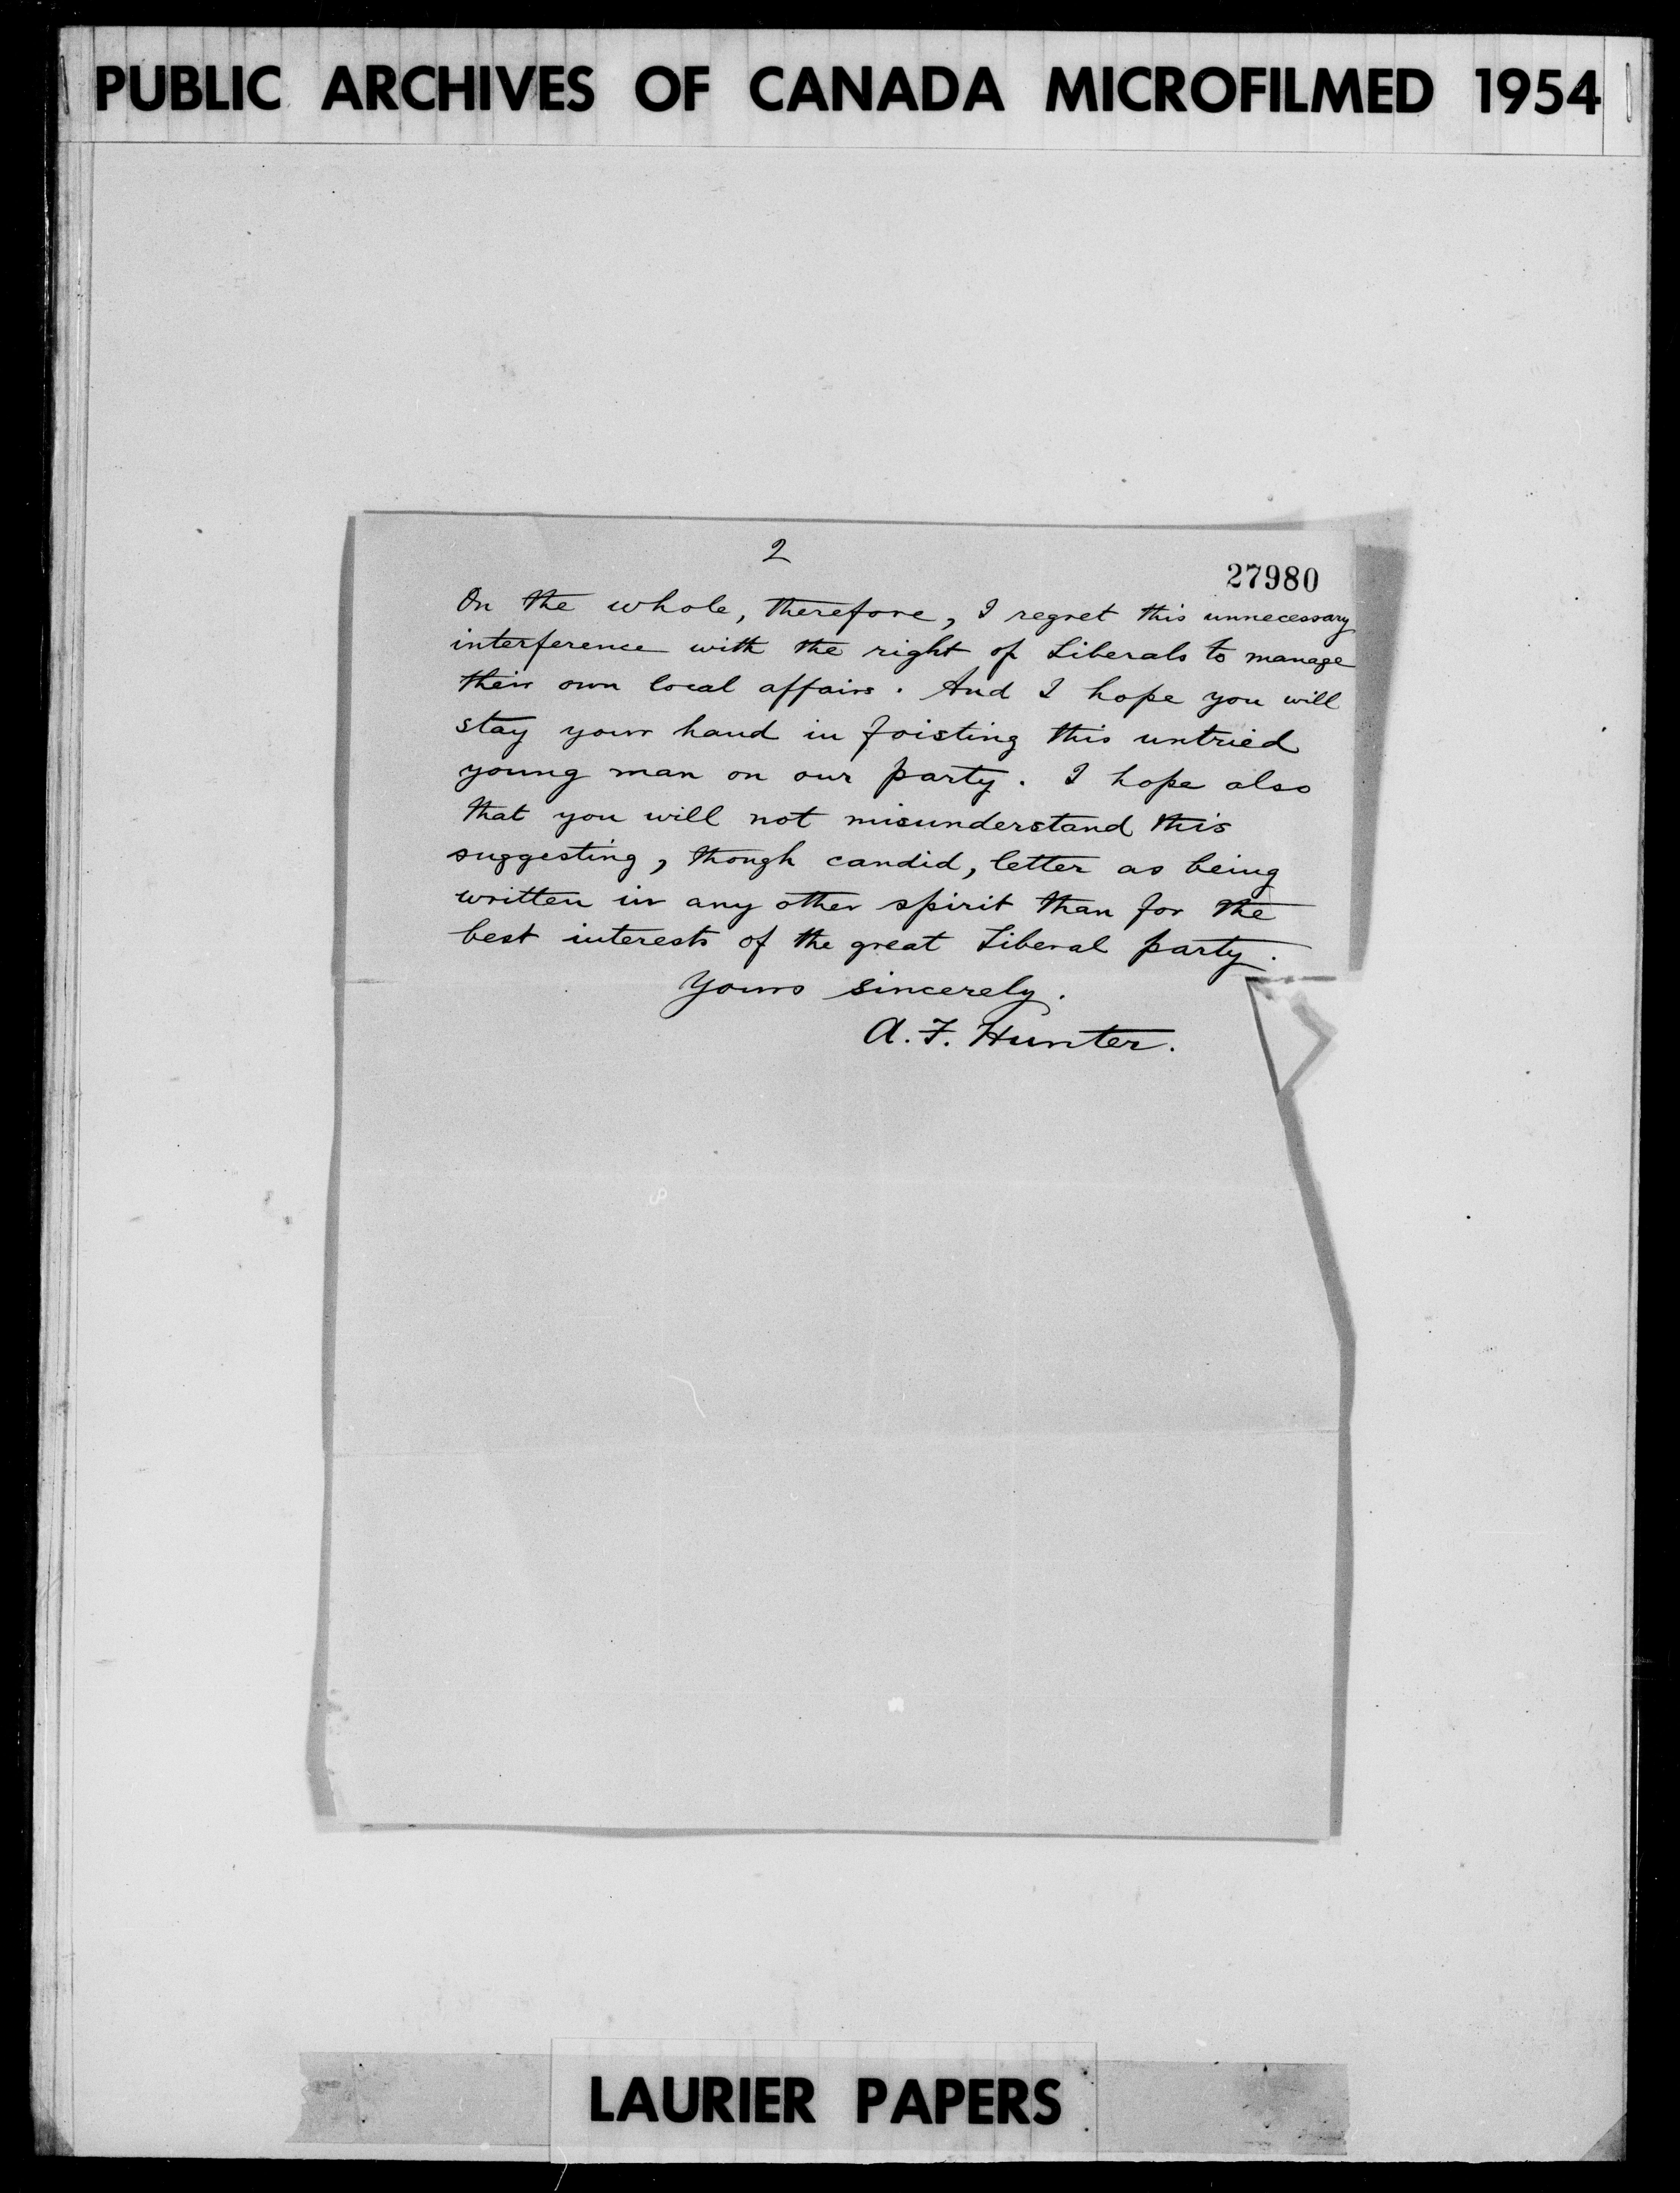 PUBLIC ARCHIVES OF CANADA MICROFILMED 1954
2
27980
On the whole, therefore, I regret this unnecessary
interference with the right of Liberals to manage
their own local affairs. And I hope you will
stay your hand in foisting this untried
young man on our party. I hope also
that you will not misunderstand this
suggesting, though candid, letter as being
written in any other spirit than for the
best interests of the great Liberal party.
Yours sincerely.
A. F. Hunter.
LAURIER PAPERS